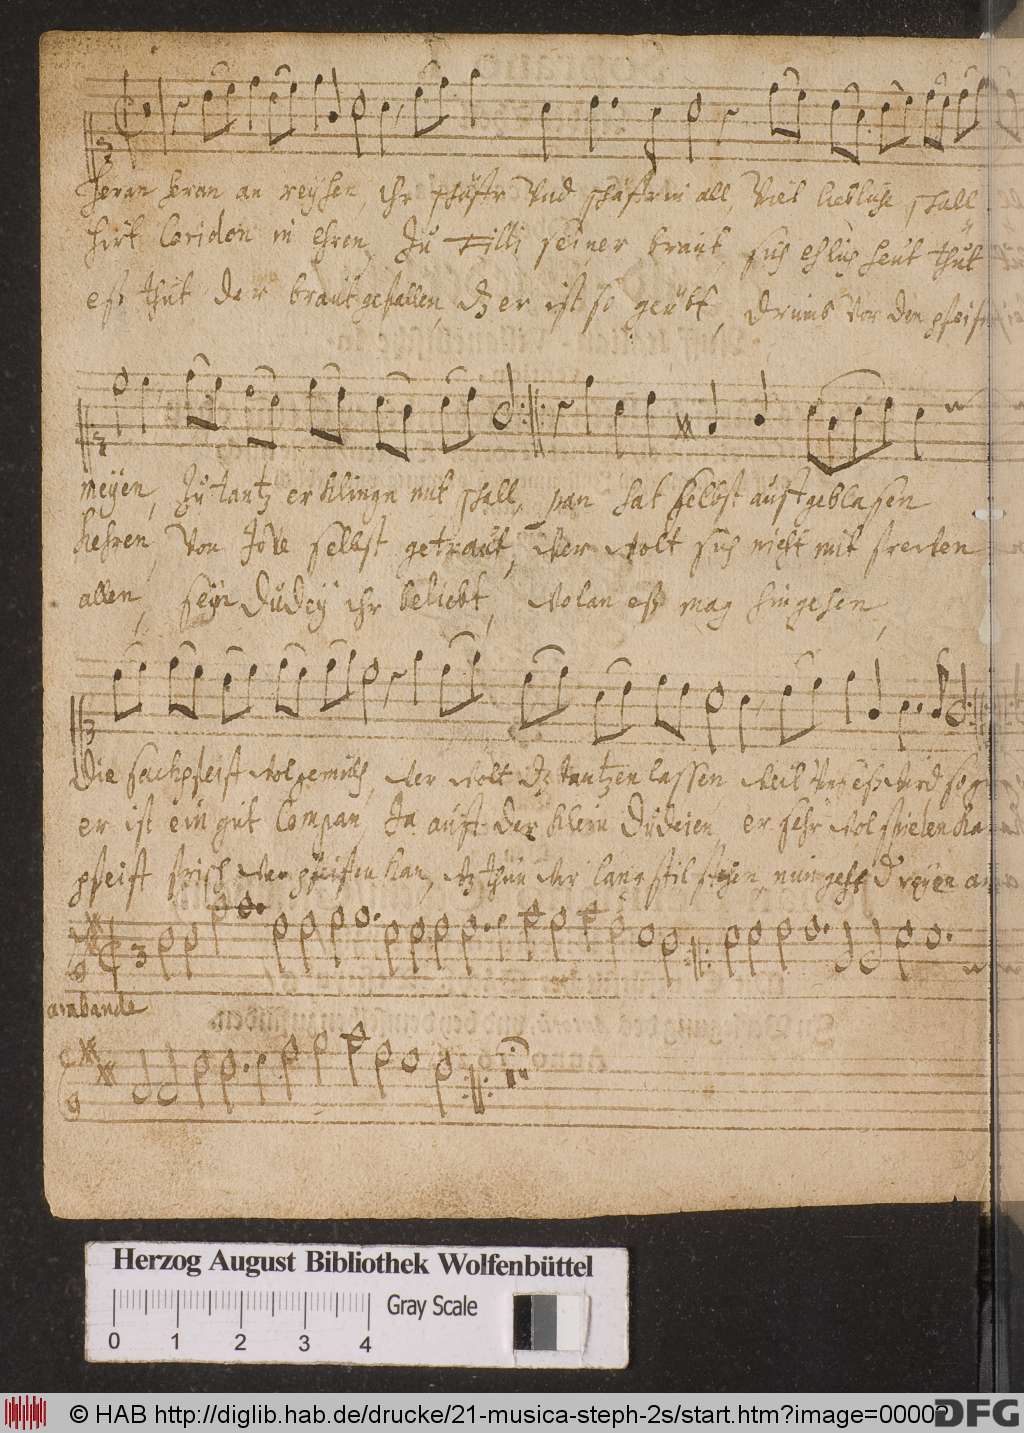 heran heran an reyhen, ihr schäffr Vnd schäffrin all, Viel liebliche schall
hirt Coridon in Ehren, Zu Filli seiner braut, sich ehlich heut thut
eß thut der braut gefallen, dz er ist so geübt, drumb Vor den pfeif
meyen, Zu tantz er klingn mit schall, pan hat selbst auffgeblasen
kehren, Von Jove selbst getraut, wer wolt sich nicht mit frewen
allen, sein dudey ihr beliebt, wolan eß mag hingehen,
Die sackpfeiff wolgemuth, wer wolt dz tantzen lassen weil
er ist ein gut Compan, Ja auff der klein dudeien, er sehr wol spielen ka
pfeiff frisch wer pfeiffen kan, nun geht
arabande
Anno
Herzog August Bibliothek Wolfenbüttel
Gray Scale
0 1 2 3 4
© HAB http://diglib.hab.de/drucke/21-musica-steph-2s/start.htm?image=00002
DFG